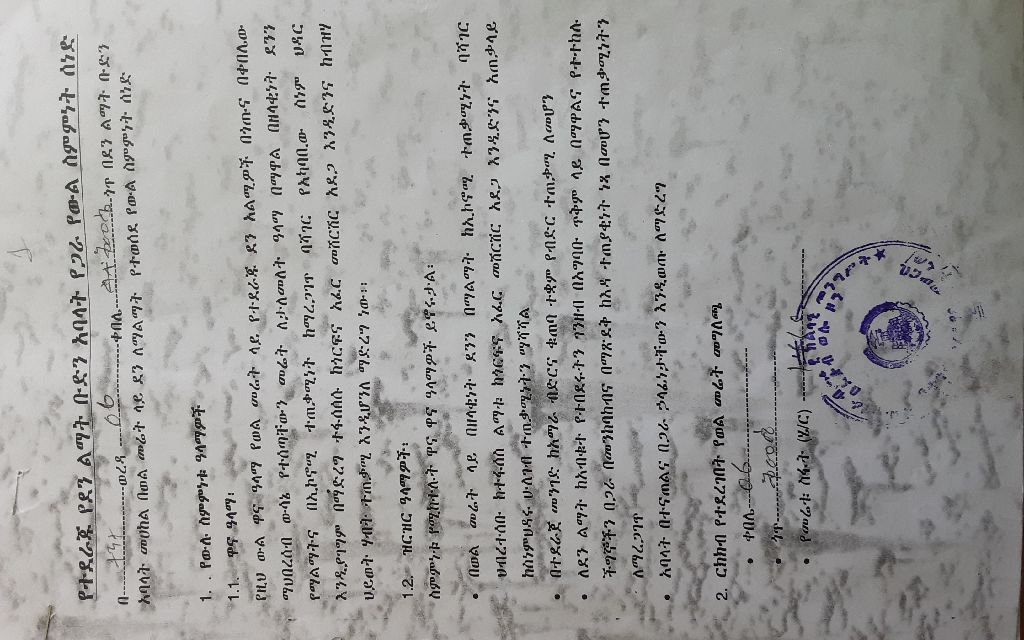 የተደራጁ የደን ልማት ቡድን አባላት የጋራ የውል ስምምነት ሰነድ
በ ወረዳ 06 ቀበሌ ጎጥ በደን ልማት ቡድን
አባላት መካከል በወል መሬት ላይ ደን ለማልማት የተወሰደ የውል ስምምነት ሰነድ
1. የውል ስምምነቱ ዓላማዎች
1.1. ዋና ዓላማ፡
የዚህ ውል ዋና ዓላማ የወል መሬት ላይ የተደራጁ ደን አልሚዎች በነጡና በቀበሌው
ማህበረሰብ ውሳኔ የተሰጣቸውን መሬት ለታለመለት ዓላማ በማዋል በዘላቂነት ደንን
የማልማትና በኢኮኖሚ ተጠቃሚነት ከማረጋገጥ በሻገር የአካባቢው ስነም ህዳር
እንዲያገግም በማድረግ ተፋሰሱ ከጎርፍና አፈር መሸርሸር አደጋ እንዲድንና ከብዝሃ
ህይወት ሀብት ተጠቃሚ እንዲሆን ለማድረግ ነው።
1.2. ዝርዝር ዓላማዎች፡
ስምምነቱ የሚከተሉት ዋና ዋና ዓላማዎች ይኖሩታል፡
• በወል መሬት ላይ በዘላቂነት ደንን በማልማት ከኢኮኖሚ ተጠቃሚነት በሻገር
ህብረተሰቡ ከተፋሰስ ልማቱ ከጎርፍና አፈር መሸርሸር አደጋ እንዲድንና አጠቃላይ
ከስነምህዳሩ ሁለንተብ ተጠቃሚነትን ማሻሻል
• በተደራጀ መንገድ ከአማራ ብድርና ቁጠባ ተቋም የብድር ተጠቃሚ ለመሆን
• ለደን ልማት ከአብቁተ የተበደሩትን ገንዘብ በአግባቡ ጥቅም ላይ በማዋልና የተተከሉ
ችግኞችን በጋራ በመንከባከብና በማጽደቅ ከእዳ ተጠያቂነት ነጻ በመሆን ተጠቃሚነትን
ለማረጋገጥ
• አባላት በተናጠልና በጋራ ኃላፊነታቸውን እንዲወጡ ለማድረግ
2. ርክክብ የተደረገበት የወል መሬት መግለጫ
• ቀበሌ 06
• ጎጥ
• የመሬቱ ስፋት (ሄ/ር)